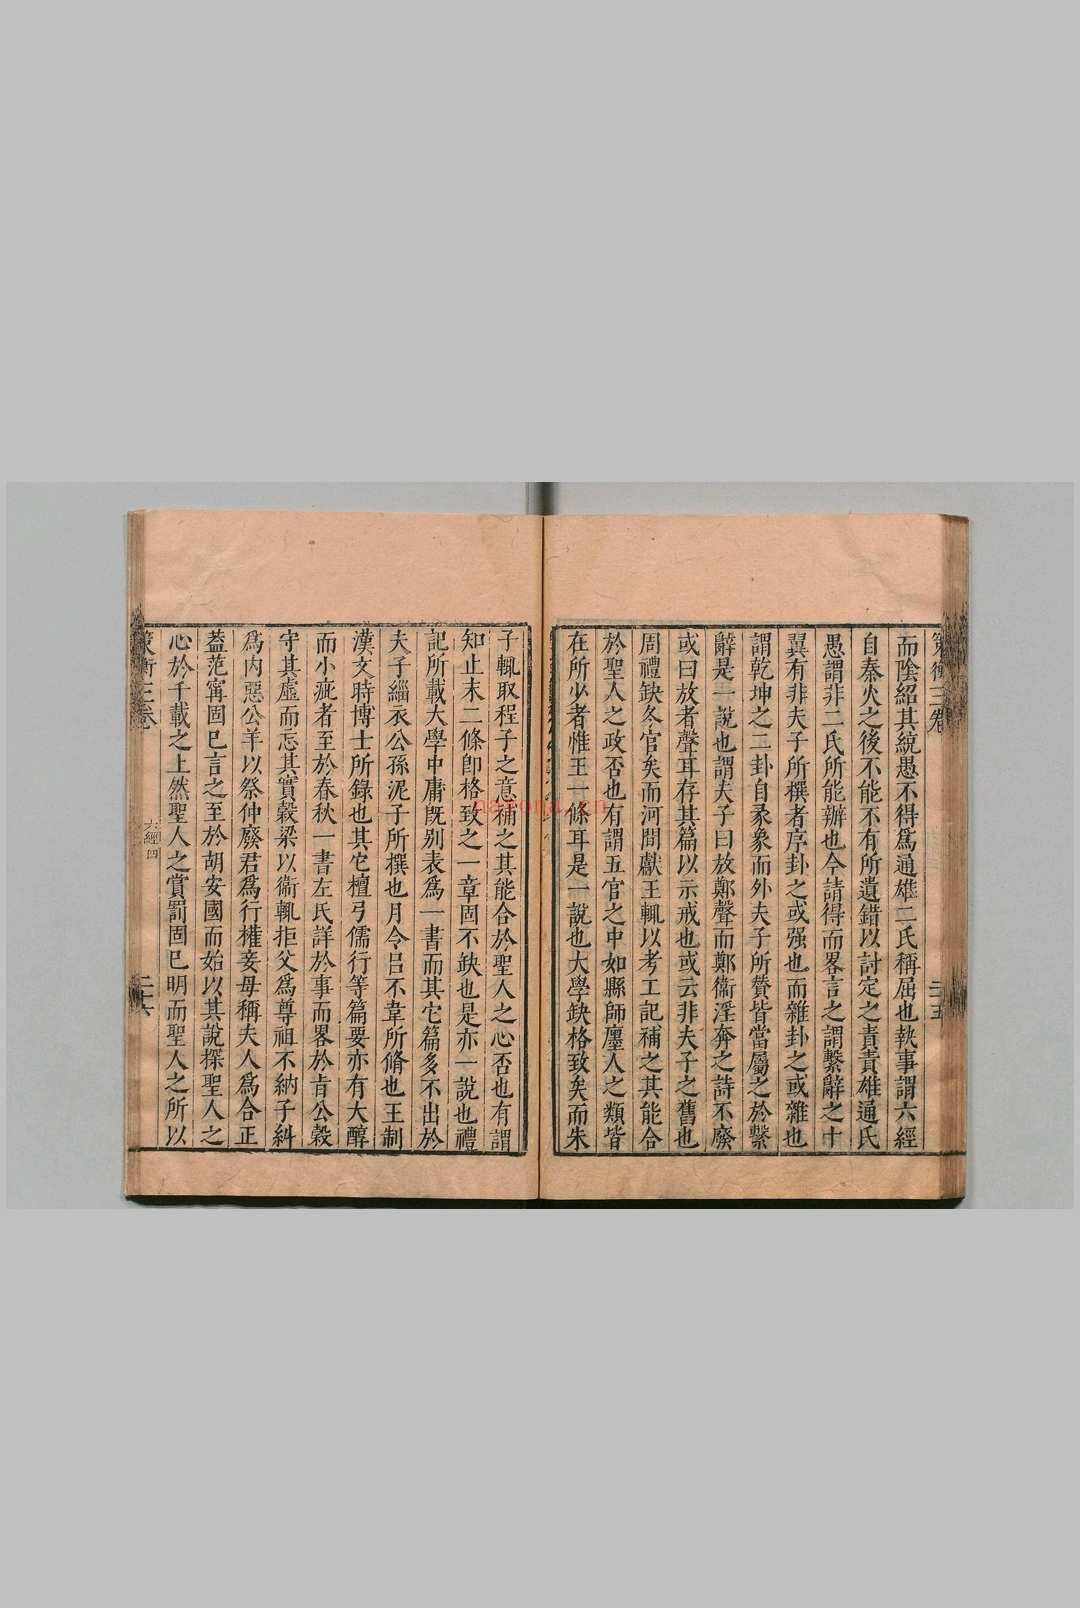 策衡三卷
二十五
而陰紹其統愚不得爲通雄二氏稱屈也執事謂六經
自秦火之後不能不有所遺錯以討定之責責雄通氏
愚謂非二氏所能辦也今請得而畧言之謂繫辭之十
翼有非夫子所撰者序卦之或强也而雜卦之或雜也
謂乾坤之二卦自彖象而外夫子所贊皆當屬之於繫
辭是一說也謂夫子曰放鄭聲而鄭衞淫奔之詩不廢
或曰放者聲耳存其篇以示戒也或云非夫子之舊也
周禮缺冬官矣而河間獻王輒以考工記補之其能合
於聖人之政否也有謂五官之中如縣師廛人之類皆
在所少者惟王一條耳是一說也大學缺格致矣而朱
子輒取程子之意補之其能合於聖人之心否也有謂
知止末二條卽格致之一章固不缺也是亦一說也禮
記所載大學中庸旣别表爲一書而其它篇多不出於
夫子緇衣公孫泥子所撰也月令吕不韋所脩也王制
漢文時博士所錄也其它檀弓儒行等篇要亦有大醇
而小疵者至於春秋一書左氏詳於事而畧於旨公穀
守其虛而忘其實穀梁以衞輒拒父爲尊祖不納子糾
爲内惡公羊以祭仲廢君爲行權妾母稱夫人爲合正
葢范甯固已言之至於胡安國而始以其說探聖人之
心於千載之上然聖人之賞罰固已明而聖人之所以
策衡三卷
六經四
二十六
nayona.cn